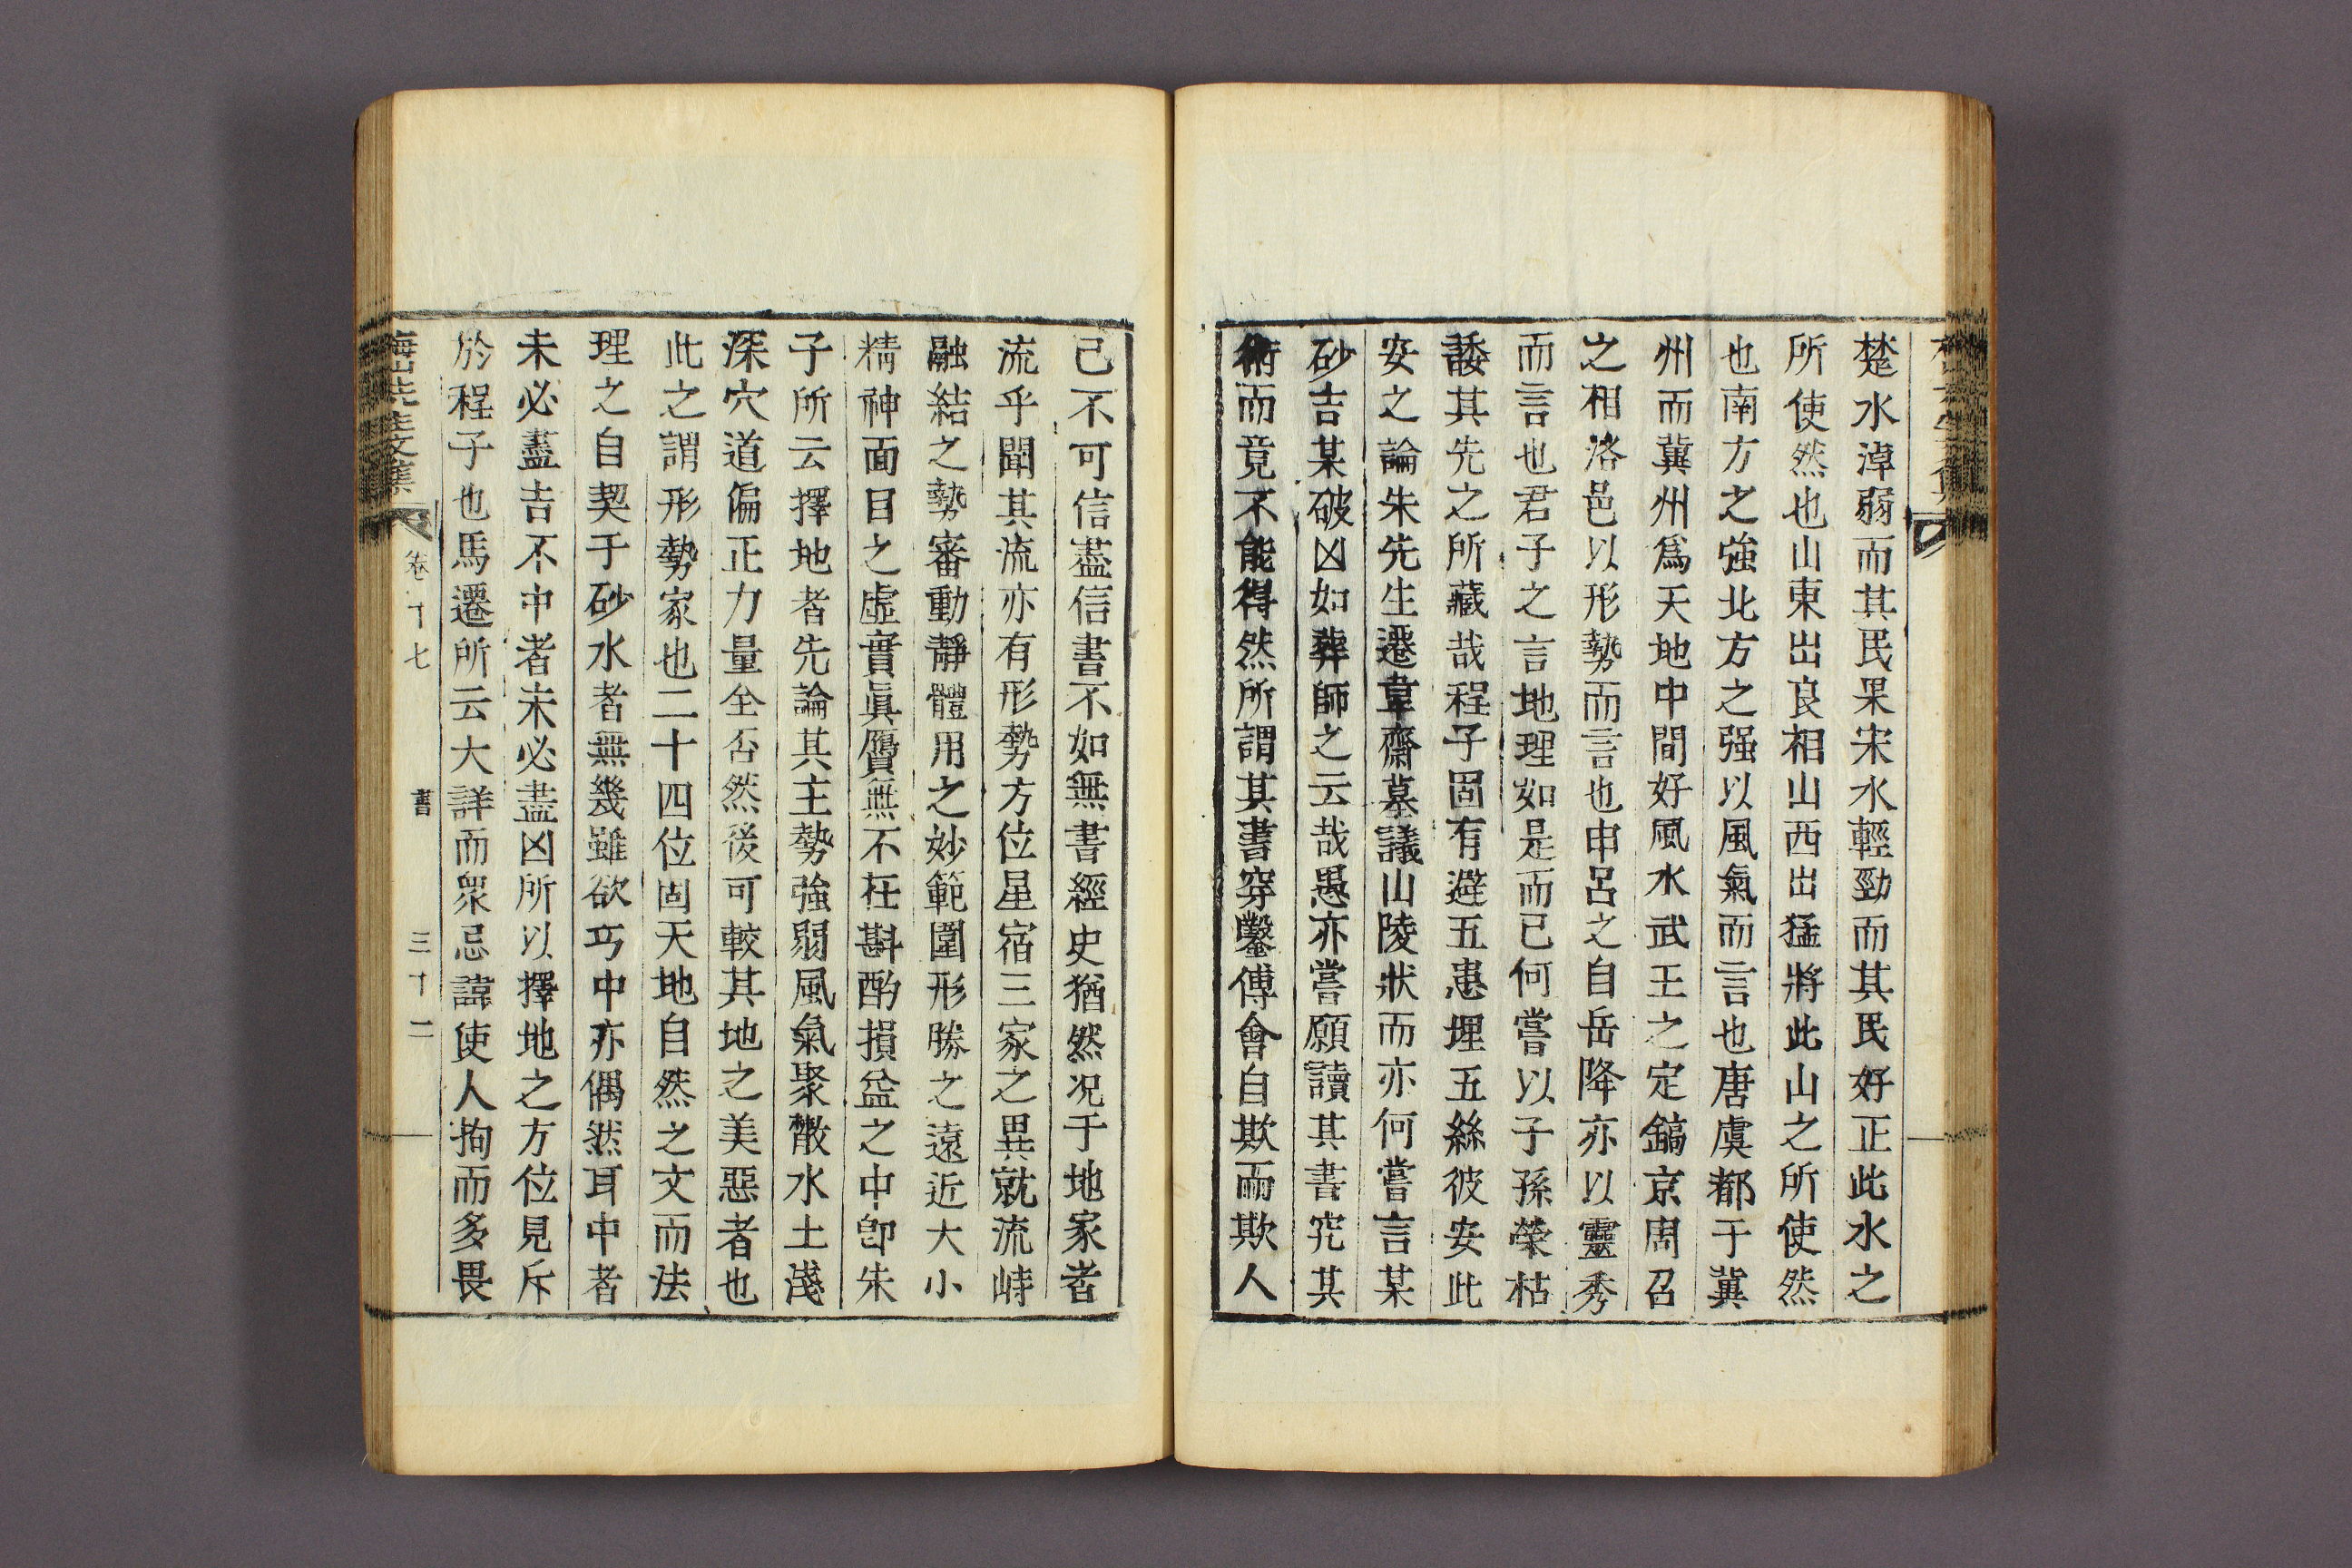 楚水淖弱而其民果宋水輕勁而其民好正此水之
所使然也山東出良相山西出猛將此山之所使然
也南方之強北方之强以風氣而言也唐虞都于冀
州而冀州爲天地中間好風水武王之定鎬京周召
之相洛邑以形勢而言也申呂之自岳降亦以靈秀
而言也君子之言地理如是而已何嘗以子孫榮枯
諉其先之所藏哉程子固有避五患埋五絲彼安此
安之論朱先生遷韋齋墓議山陵狀而亦何嘗言某
砂吉某破凶如葬師之云哉愚亦嘗願讀其書究其
術而竟不能得然所謂其書穿鑿傅會自欺而欺人
己不可信盡信書不如無書經史猶然况于地家者
流乎聞其流亦有形勢方位星宿三家之異就流峙
融結之勢審動靜體用之妙範圍形勝之遠近大小
精神面目之虛實眞贗無不在斟酌損益之中卽朱
子所云擇地者先論其主勢強弱風氣聚散水土淺
深穴道偏正力量全否然後可較其地之美惡者也
此之謂形勢家也二十四位固天地自然之文而法
理之自契于砂水者無幾雖欲巧中亦偶然耳中者
未必盡吉不中者未必盡凶所以擇地之方位見斥
於程子也馬遷所云大詳而衆忌諱使人拘而多畏
卷十七 書 三十二